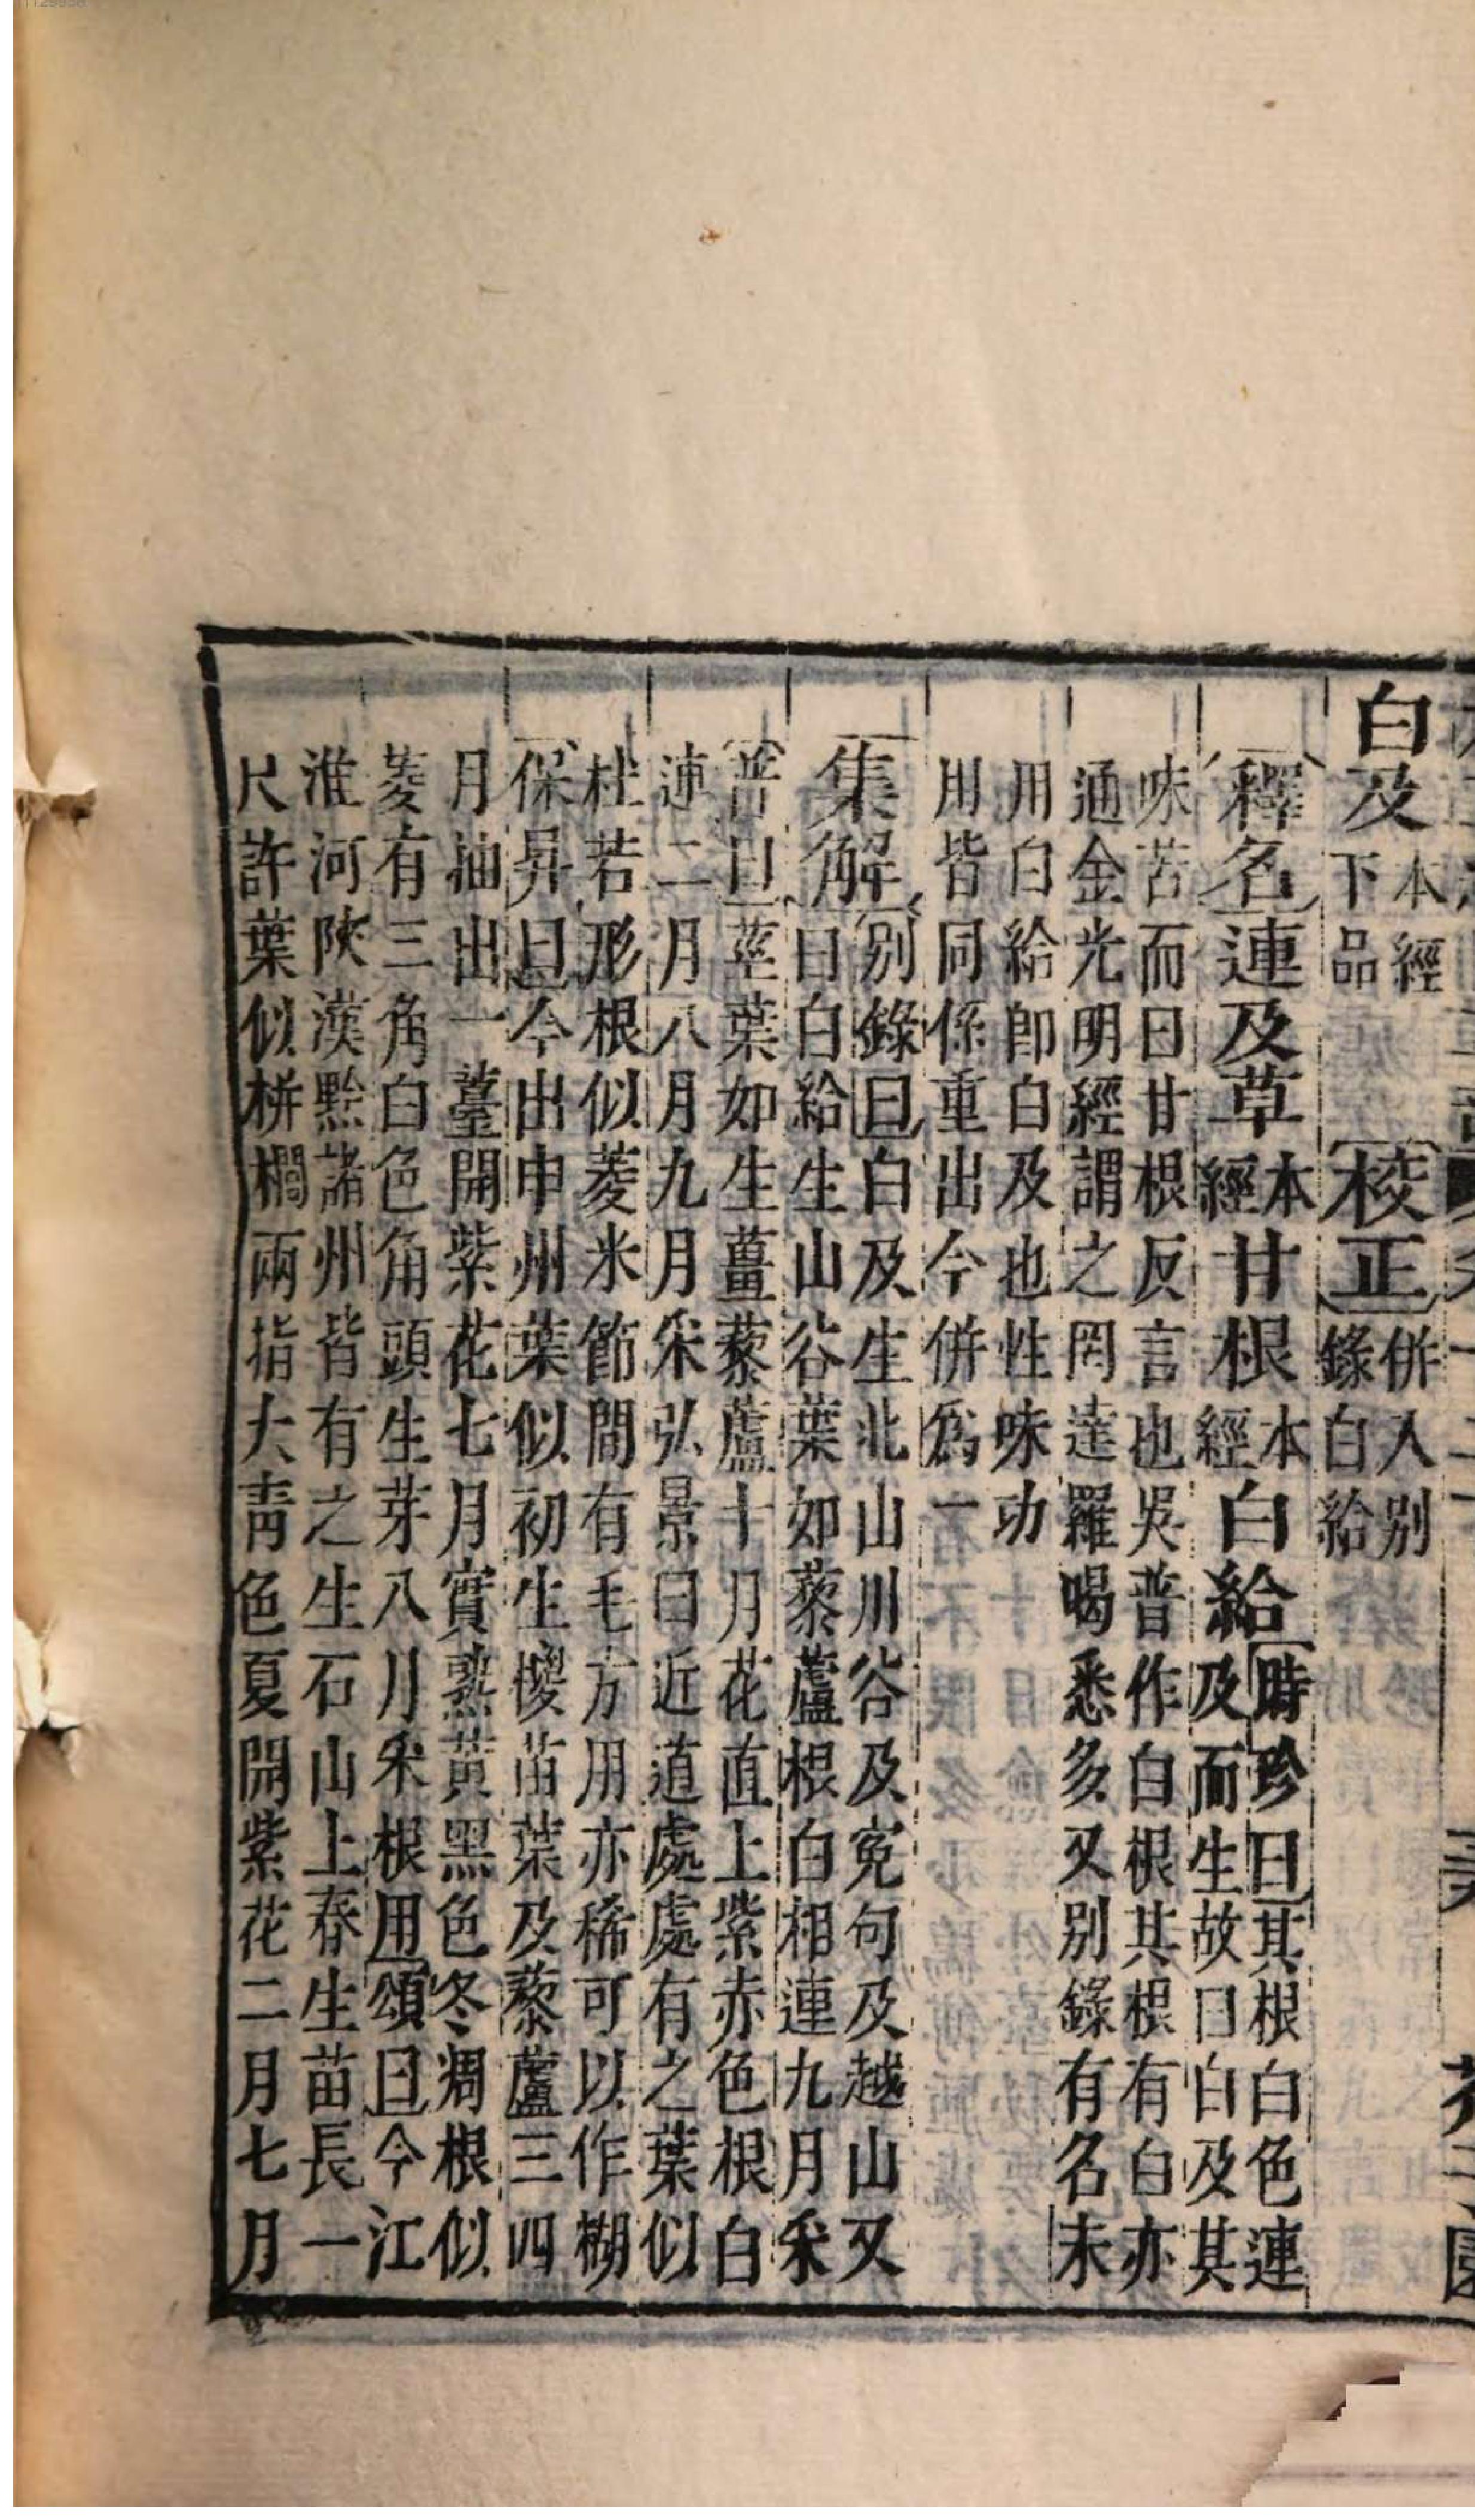 白及本經下品 校正併入別錄白給
釋名連及草本經甘根本經白給時珍曰其根白色連及而生故曰白及其
味苦而曰甘根反言也吳普作白根其根有白亦
通金光明經謂之罔達羅喝悉多又別錄有名未
用白給卽白及也性味功
用皆同係重出今併爲一
集解別錄曰白及生北山川谷及寃句及越山又
曰白給生山谷葉如藜蘆根白相連九月采
普曰莖葉如生薑藜蘆十月花直上紫赤色根白
連二月八月九月采弘景曰近道處處有之葉似
杜若形根似菱米節間有毛方用亦稀可以作糊
保昇曰今出申州葉似初生椶苗葉及藜蘆三四
月抽出一薹開紫花七月實熟黃黑色冬凋根似
菱有三角白色角頭生芽八月采根用頌曰今江
淮河陝漢黔諸州皆有之生石山上春生苗長一
尺許葉似栟櫚兩指大青色夏開紫花二月七月